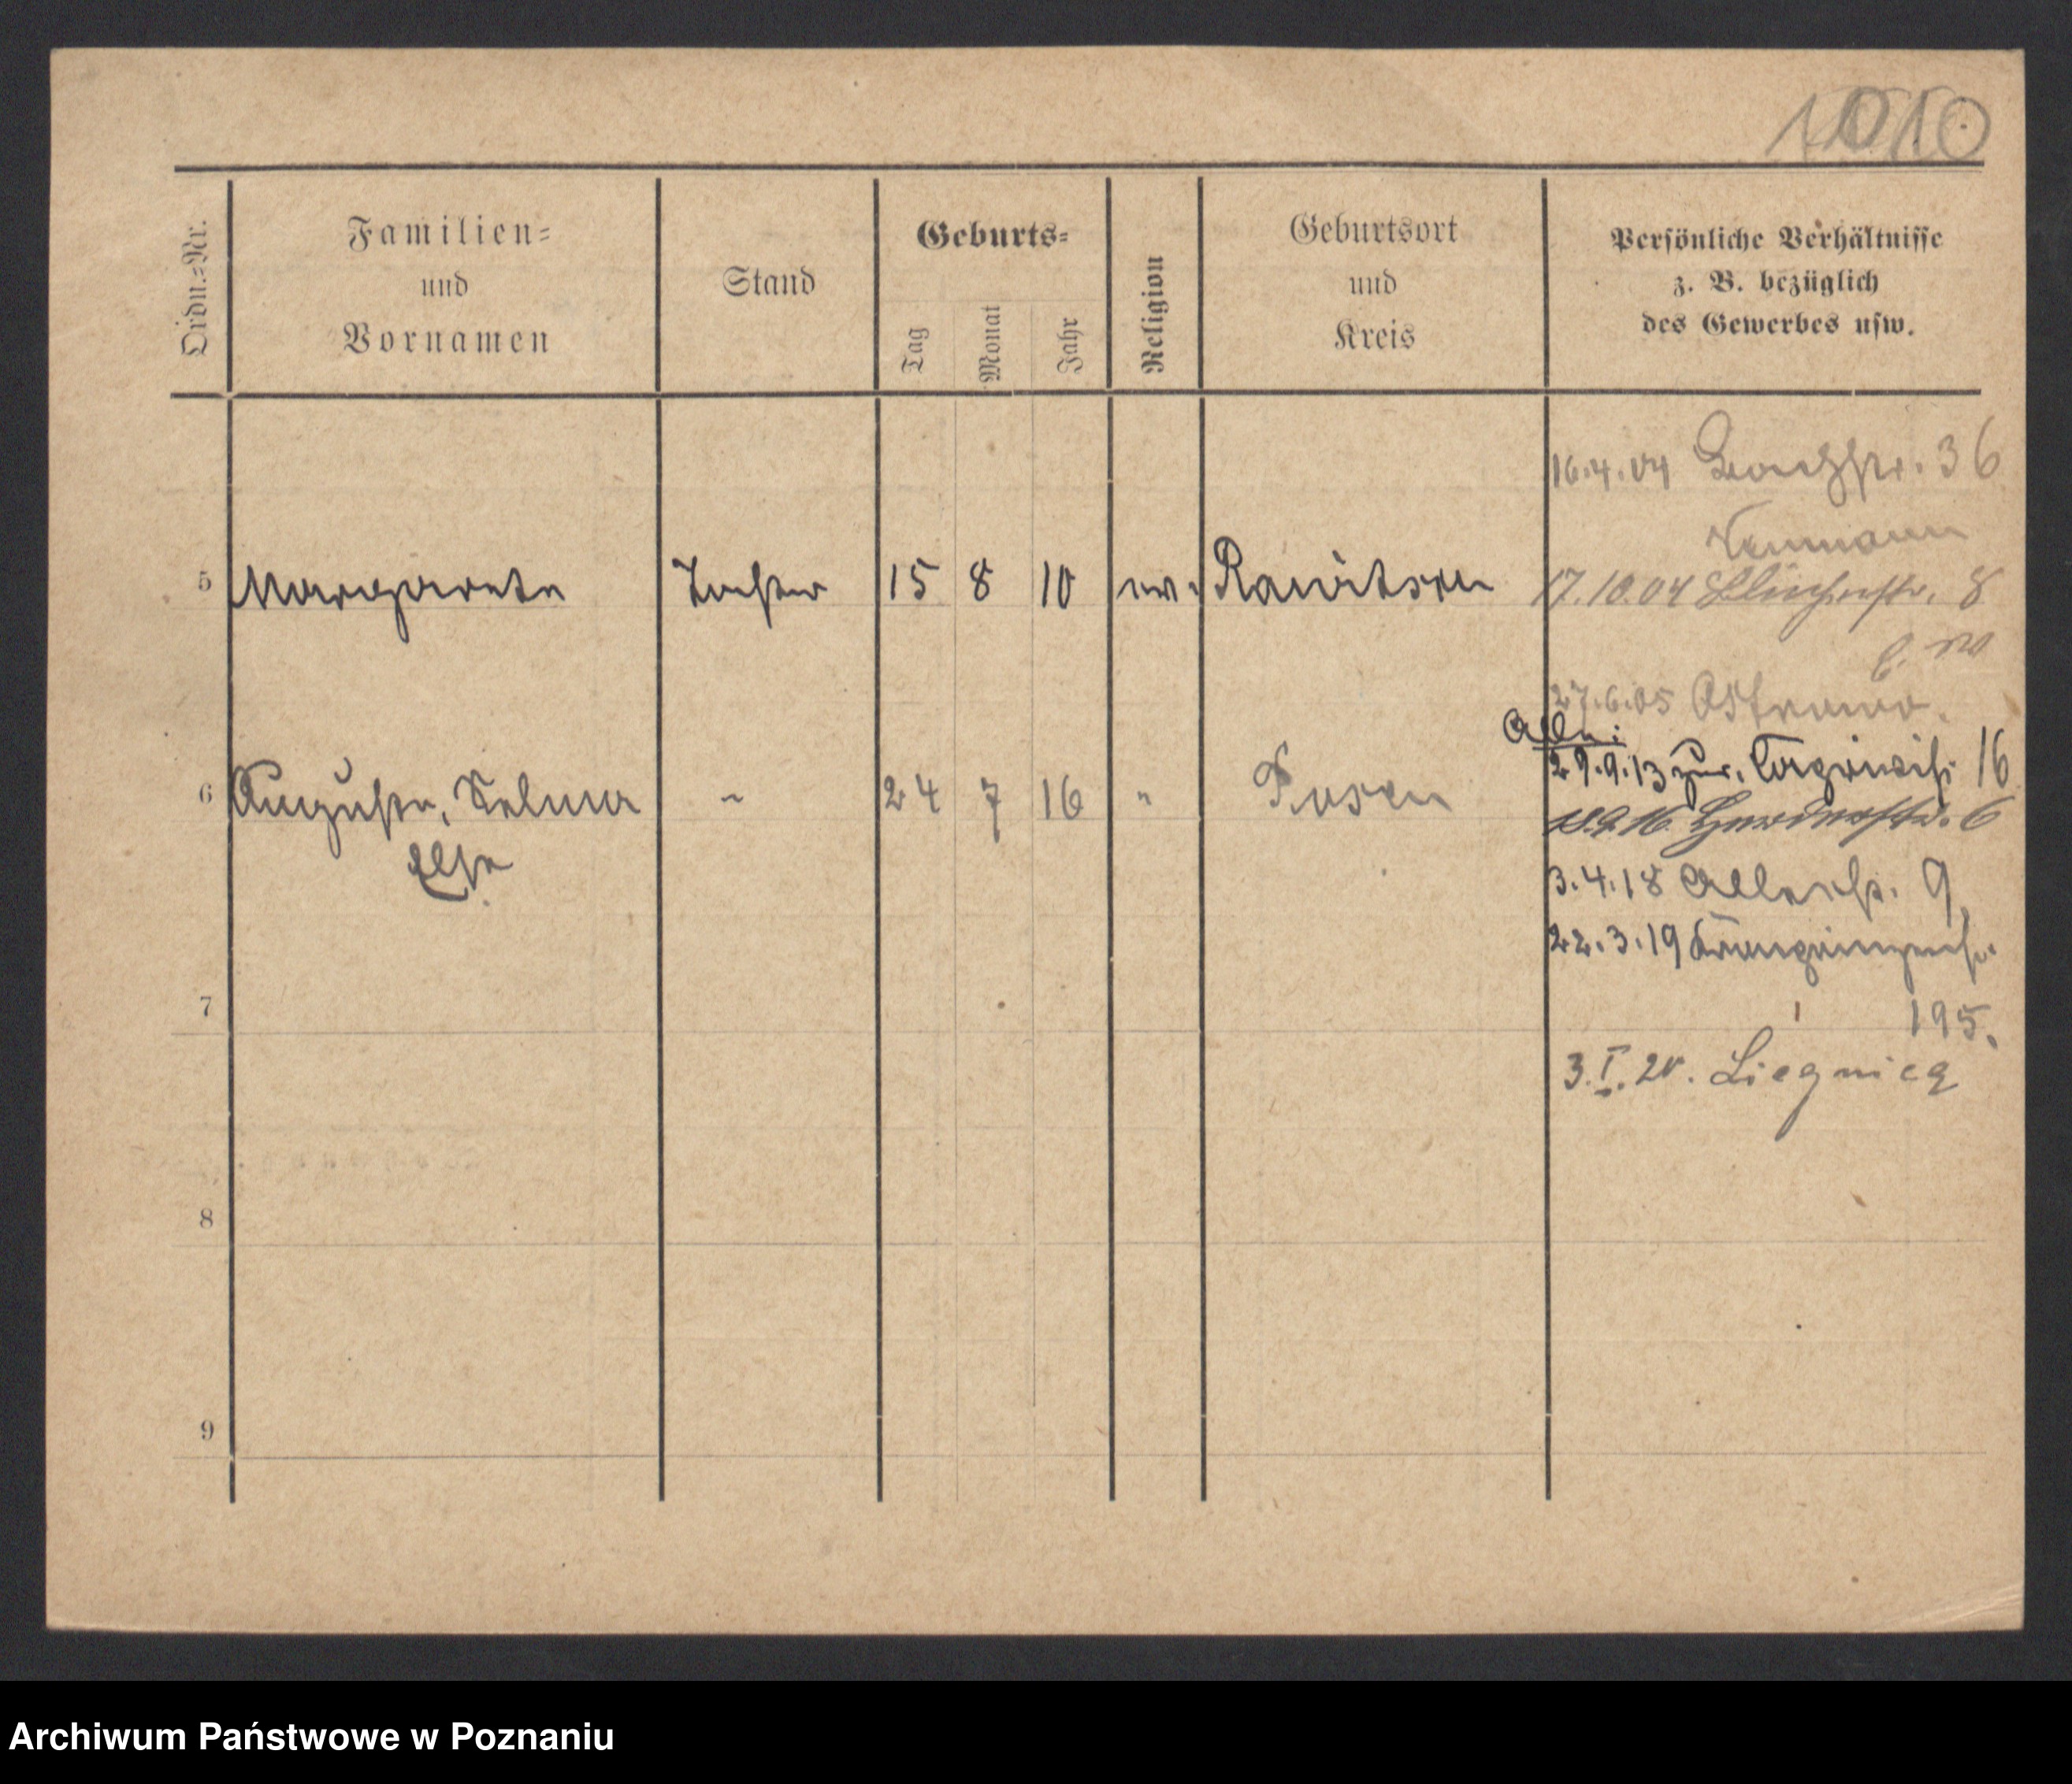 1010
Ordn.=Nr.
Familien=
und
Vornamen
Stand
Geburts=
Tag
Monat
Jahr
Religion
Geburtsort
und
Kreis
Persönliche Verhältnisse
z. B. bezüglich
des Gewerbes usw.
16.4.04 36
Neumann
5 Margarete Tochter 15 8 10 ev. Rawitsch
17.10.04 8
27.6.05 Ostrowo.
29.9.13 16
6 Auguste, Selma 24 7 16 " Posen
18.9.16 6
Else
3.4.18 9
22.3.19
7
195.
3.I.20. Liegnitz
8
9
Archiwum Państwowe w Poznaniu